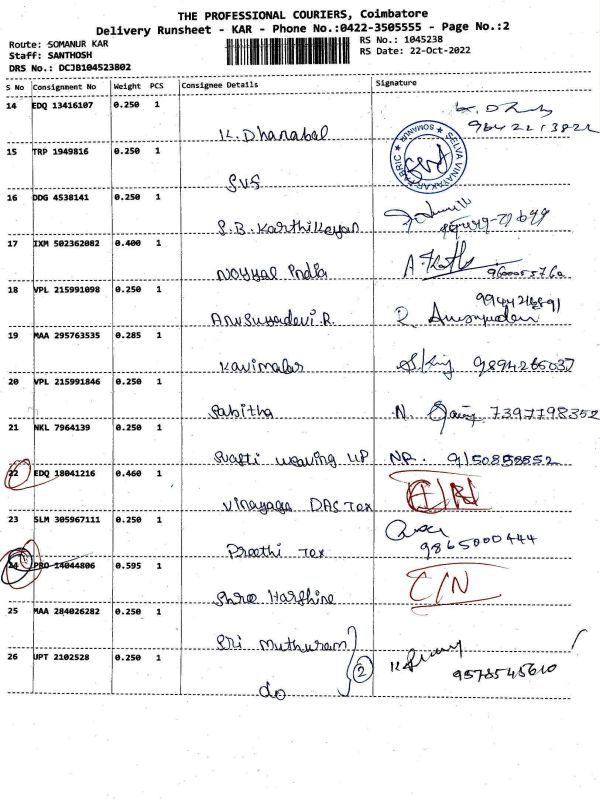 THE PROFESSIONAL COURIERS, Coimbatore
Delivery Runsheet - KAR - Phone No.:0422-3505555 - Page No.:2
Route: SOMANUR KAR
RS No.: 1045238
Staff: SANTHOSH
RS Date: 22-Oct-2022
DRS No.: DCJB104523802
S No Consignment No Weight PCS Consignee Details Signature
14 EDQ 13416107 0.250 1
K. Dhanabal
15 TRP 1949816 0.250 1
SVS
SELVA VINAYAKAR FABRIC ★ SOMANUR ★
16 DDG 4538141 0.250 1
S.B. Karthikeyan
17 IXM 502362082 0.400 1
Noyyal India
18 VPL 215991098 0.250 1
Anusuyadevi.R.
19 MAA 295763535 0.285 1
Kavimalar 9894265037
20 VPL 215991846 0.250 1
Sabitha N. 7397798352
21 NKL 7964139 0.250 1
Svasti weaving LLP NR. 9150858552
22 EDQ 18041216 0.460 1
Vinayaga DAS Tex
23 SLM 305967111 0.250 1
Preethi Tex 9865000444
24 PRO 14044806 0.595 1
Shree Harshine C/N
25 MAA 284026282 0.250 1
Sri Muthuram
26 UPT 2102528 0.250 1
2
do 9578545610